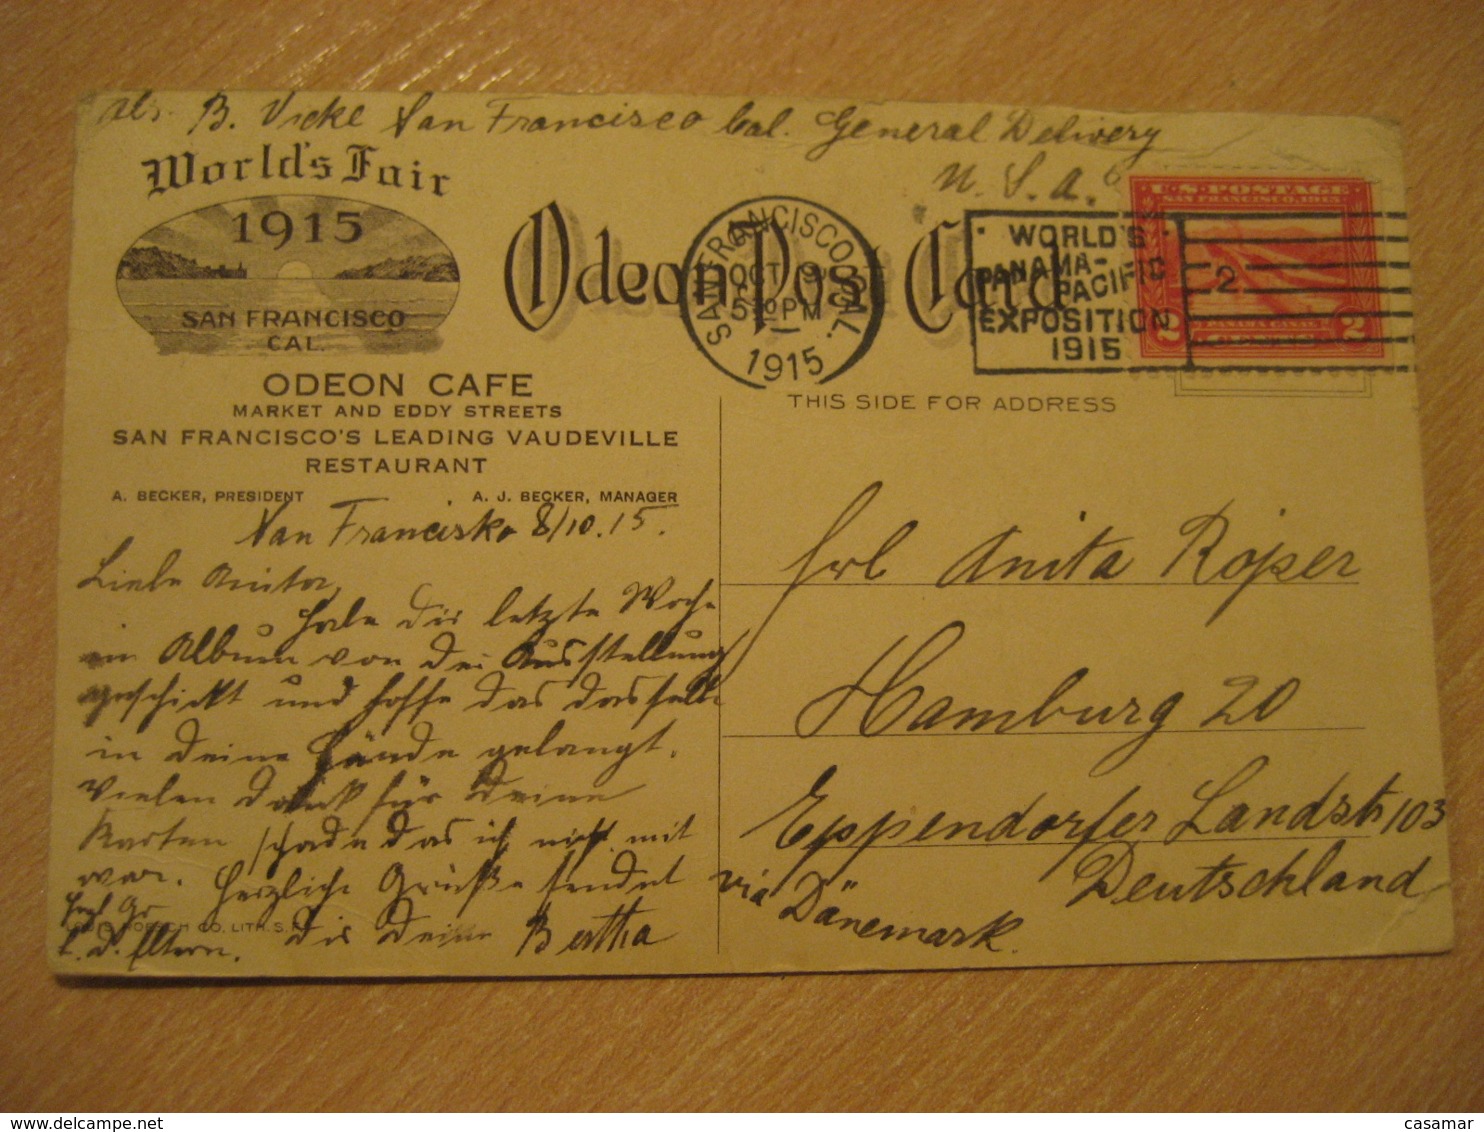 Abs. B. Vicke San Francisco Cal. General Delivery
U. S. A.
World's Fair
1915
SAN FRANCISCO
CAL.
Odeon Post Card
SAN FRANCISCO, CAL.
OCT 9
5 PM
1915
WORLD'S
PANAMA-
PACIFIC
EXPOSITION
1915
2
U.S. POSTAGE
SAN FRANCISCO, 1915
PANAMA CANAL
2 CENTS 2
ODEON CAFE
MARKET AND EDDY STREETS
SAN FRANCISCO'S LEADING VAUDEVILLE
RESTAURANT
A. BECKER, PRESIDENT A. J. BECKER, MANAGER
THIS SIDE FOR ADDRESS
San Francisko 8/10.15.
Liebe Anita,
Habe dir letzte Woche
ein Album von der Ausstellung
geschickt und hoffe das dasselbe
in deine Hände gelangt.
Vielen Dank für deine
Karten schade das ich nicht mit
war. Herzliche Grüße sendet
dir deine Bertha
Herzl. Gr.
a. d. Eltern.
CO. LITH. S.F.
Frl Anita Röper
Hamburg 20
Eppendorfer Landstr 103
Deutschland
via Dänemark.
casamar
www.delcampe.net